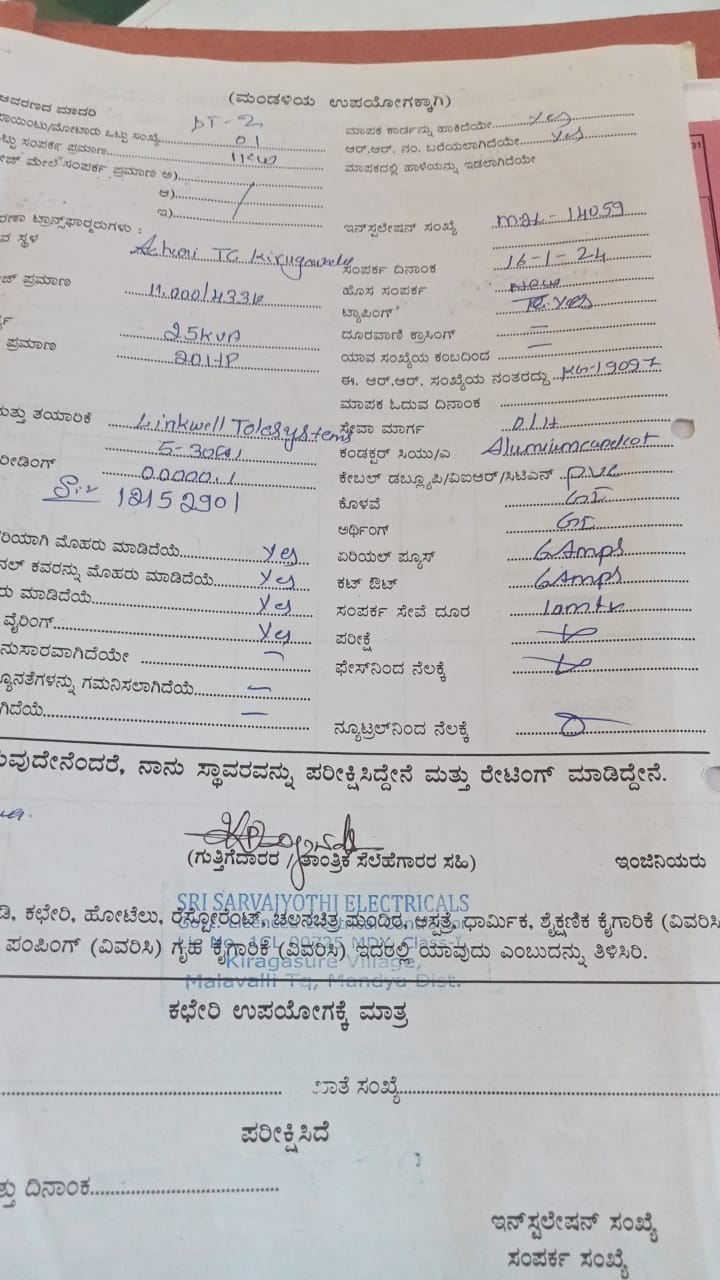 (ಮಂಡಳಿಯ ಉಪಯೋಗಕ್ಕಾಗಿ)
ಆವರಣದ ಮಾದರಿ
ಪಾಯಿಂಟು/ಮೋಟಾರು ಒಟ್ಟು ಸಂಖ್ಯೆ 01 ಮಾಪಕ ಕಾರ್ಡನ್ನು ಹಾಕಿದೆಯೇ Yes
ಸಂಪರ್ಕ ಪ್ರಮಾಣ ಆರ್.ಆರ್. ನಂ. ಬರೆಯಲಾಗಿದೆಯೇ Yes
ಮೇಲೆ ಸಂಪರ್ಕ ಪ್ರಮಾಣ ಅ) ಮಾಪಕದಲ್ಲಿ ಹಾಳೆಯನ್ನು ಇಡಲಾಗಿದೆಯೇ
ಆ)
ಇ) ಇನ್‌ಸ್ಟಲೇಷನ್ ಸಂಖ್ಯೆ MBL-14059
ಟ್ರಾನ್ಸ್‌ಫಾರ್ಮರುಗಳು :
ಸ್ಥಳ TC ಸಂಪರ್ಕ ದಿನಾಂಕ 16-1-24
ಪ್ರಮಾಣ 11,000/433V ಹೊಸ ಸಂಪರ್ಕ New
ಟ್ಯಾಪಿಂಗ್ Yes
25KVA ದೂರವಾಣಿ ಕ್ರಾಸಿಂಗ್ —
ಪ್ರಮಾಣ 20HP ಯಾವ ಸಂಖ್ಯೆಯ ಕಂಬದಿಂದ —
ಈ. ಆರ್.ಆರ್. ಸಂಖ್ಯೆಯ ನಂತರದ್ದು KG-19097
ಮಾಪಕ ಓದುವ ದಿನಾಂಕ
ಮತ್ತು ತಯಾರಿಕೆ Linkwell Telesystems ಸೇವಾ ಮಾರ್ಗ O/H
5-30(A) ಕಂಡಕ್ಟರ್ ಸಿಯು/ಎ
ರೀಡಿಂಗ್ 00000.1 ಕೇಬಲ್ ಡಬ್ಲ್ಯೂಪಿ/ವಿಐಆರ್/ಸಿಟಿಎಸ್ PVC
12152901 ಕೊಳವೆ GI
ಅರ್ಥಿಂಗ್ GI
ಮೊಹರು ಮಾಡಿದೆಯೆ Yes ಏರಿಯಲ್ ಪ್ಯೂಸ್ 6Amps
ಕವರನ್ನು ಮೊಹರು ಮಾಡಿದೆಯೆ Yes ಕಟ್ ಔಟ್ 6Amps
ಮಾಡಿದೆಯೆ Yes ಸಂಪರ್ಕ ಸೇವೆ ದೂರ 10mtr
ವೈರಿಂಗ್ Yes ಪರೀಕ್ಷೆ
ನುಸಾರವಾಗಿದೆಯೇ — ಫೇಸ್‌ನಿಂದ ನೆಲಕ್ಕೆ
ನ್ಯೂನತೆಗಳನ್ನು ಗಮನಿಸಲಾಗಿದೆಯೆ —
ಗಿದೆಯೆ — ನ್ಯೂಟ್ರಲ್‌ನಿಂದ ನೆಲಕ್ಕೆ
ವುದೇನೆಂದರೆ, ನಾನು ಸ್ಥಾವರವನ್ನು ಪರೀಕ್ಷಿಸಿದ್ದೇನೆ ಮತ್ತು ರೇಟಿಂಗ್ ಮಾಡಿದ್ದೇನೆ.
(ಗುತ್ತಿಗೆದಾರರ / ತಾಂತ್ರಿಕ ಸಲಹೆಗಾರರ ಸಹಿ) ಇಂಜಿನಿಯರು
SRI SARVAJYOTHI ELECTRICALS
ಕಛೇರಿ, ಹೋಟೆಲು, ರೆಸ್ಟೋರೆಂಟ್, ಚಲನಚಿತ್ರ ಮಂದಿರ, ಆಸ್ಪತ್ರೆ, ಧಾರ್ಮಿಕ, ಶೈಕ್ಷಣಿಕ ಕೈಗಾರಿಕೆ (ವಿವರಿಸಿ
ಪಂಪಿಂಗ್ (ವಿವರಿಸಿ) ಗೃಹ ಕೈಗಾರಿಕೆ (ವಿವರಿಸಿ) ಇದರಲ್ಲಿ ಯಾವುದು ಎಂಬುದನ್ನು ತಿಳಿಸಿರಿ.
Kiragasure Village,
Malavalli Tq, Mandya Dist.
ಕಛೇರಿ ಉಪಯೋಗಕ್ಕೆ ಮಾತ್ರ
ಖಾತೆ ಸಂಖ್ಯೆ
ಪರೀಕ್ಷಿಸಿದೆ
ದಿನಾಂಕ
ಇನ್‌ಸ್ಟಲೇಷನ್ ಸಂಖ್ಯೆ
ಸಂಪರ್ಕ ಸಂಖ್ಯೆ